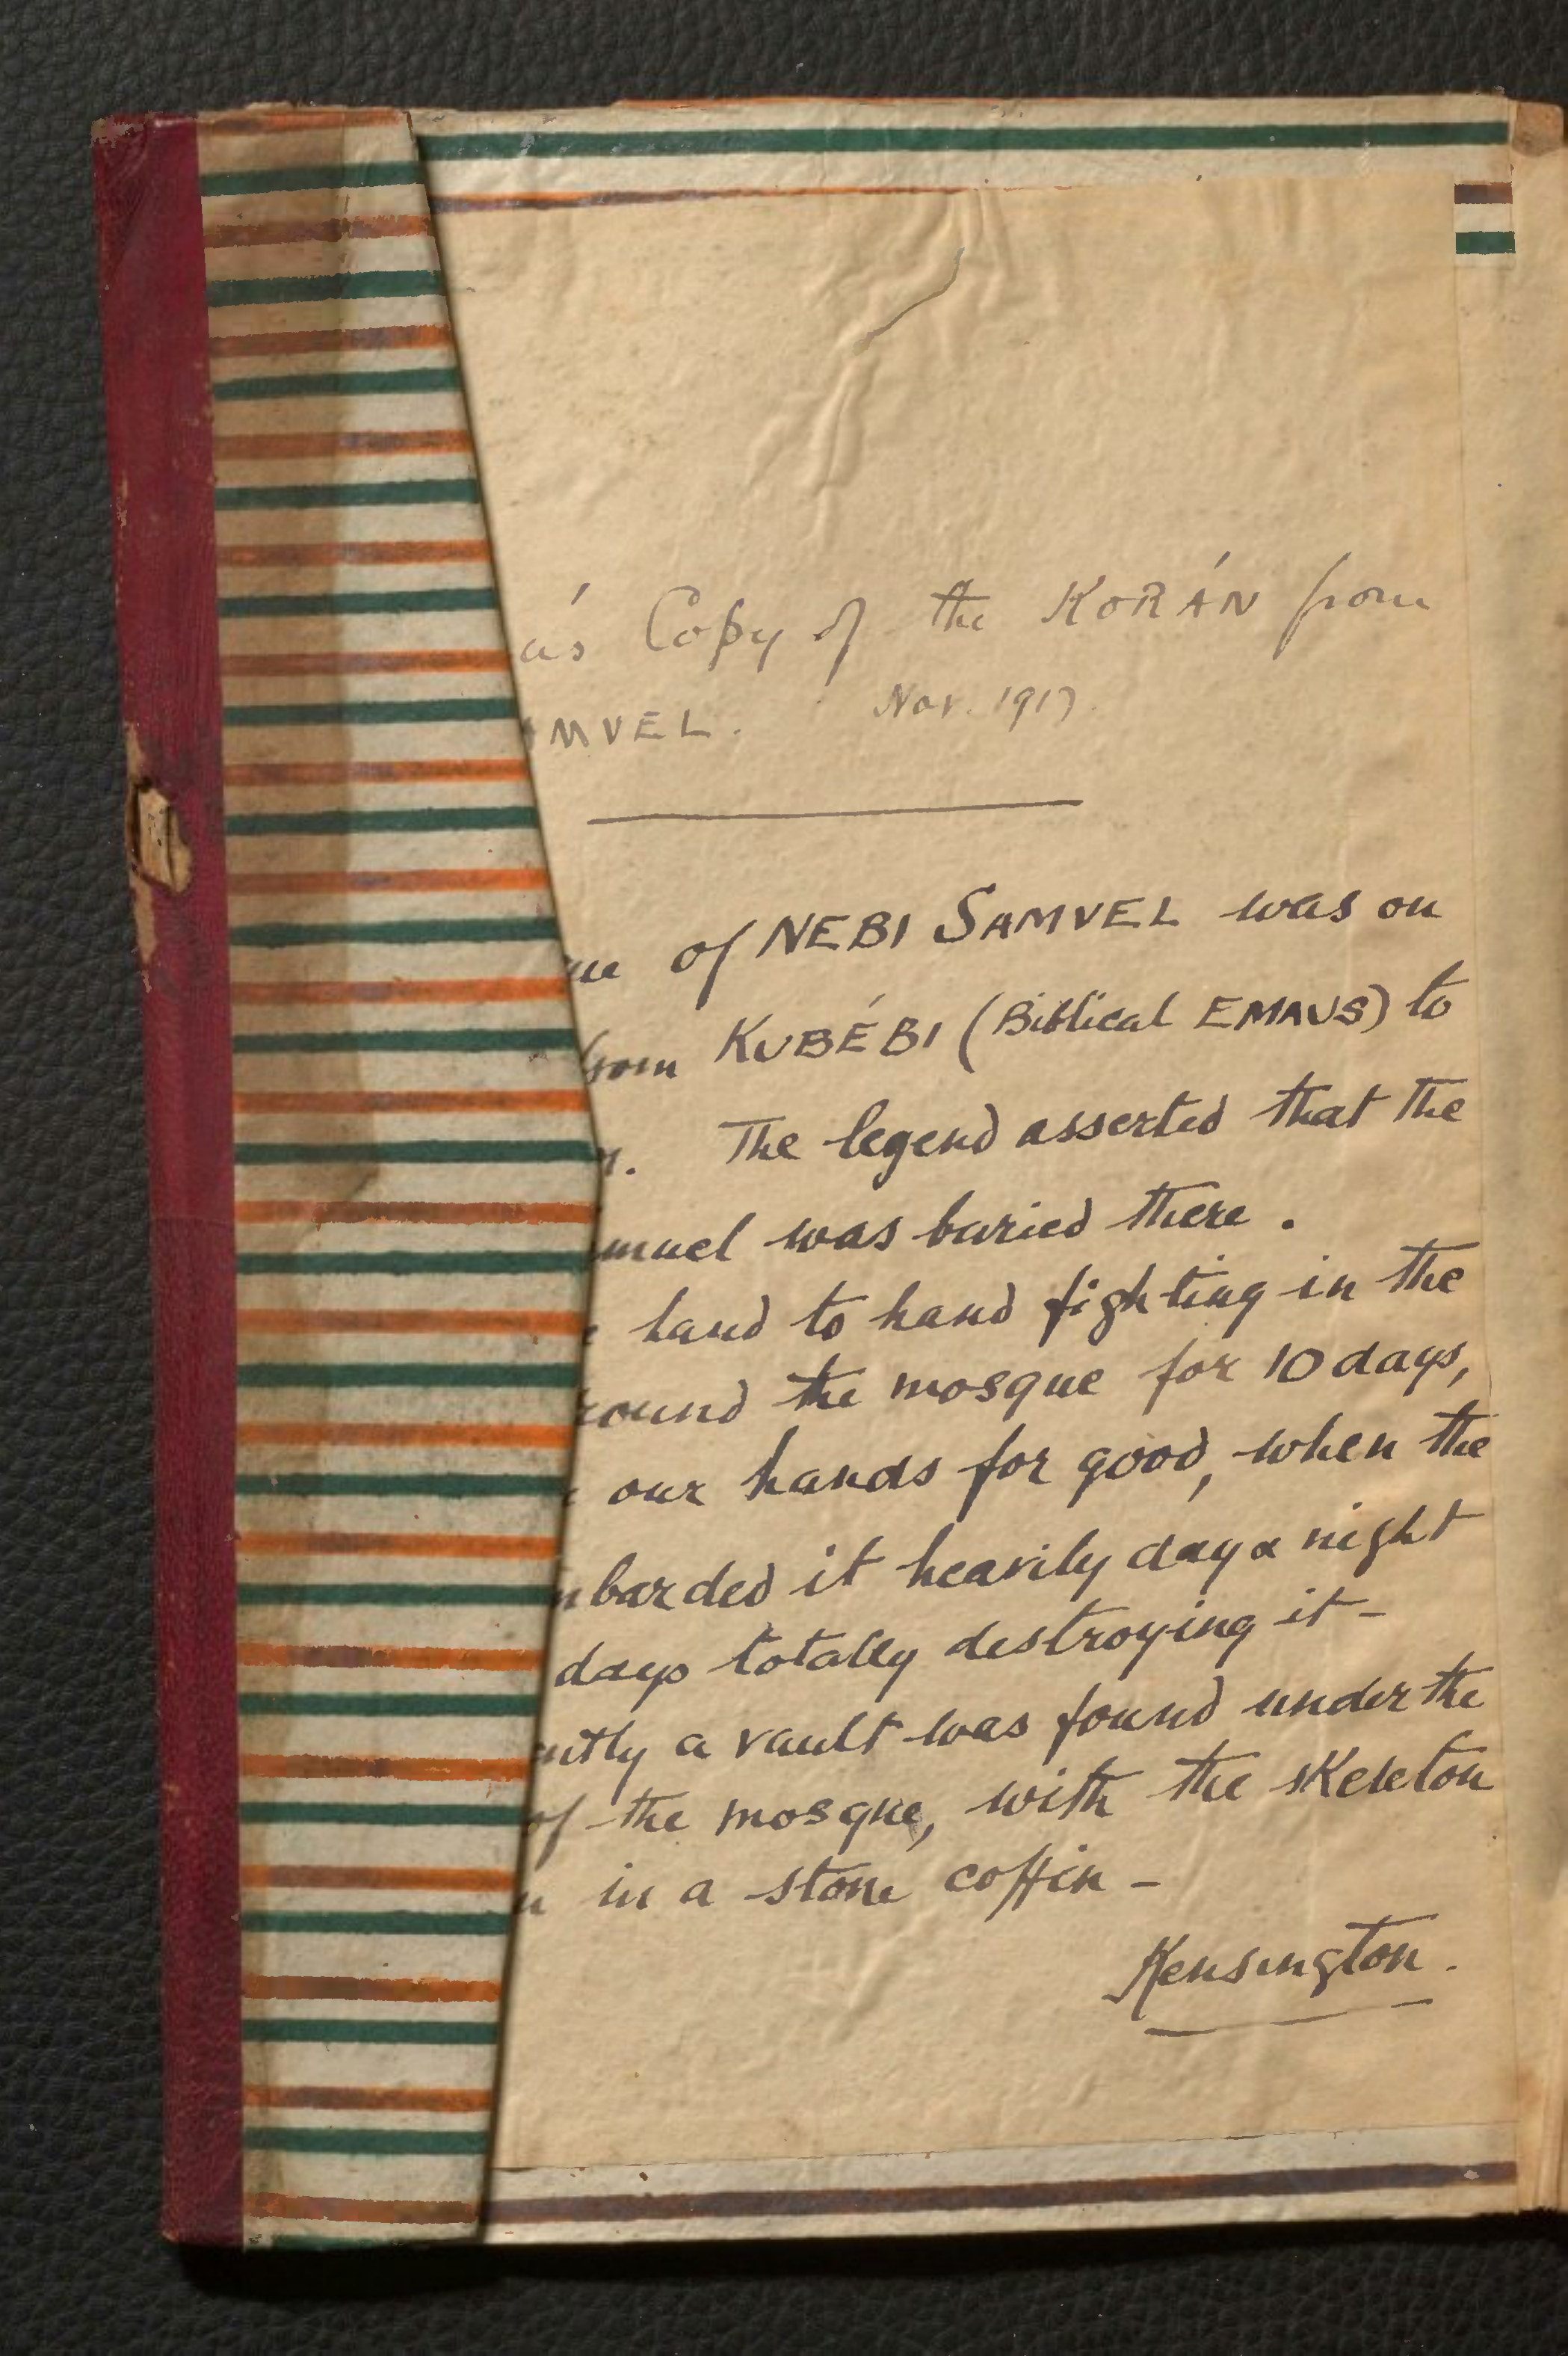 Copy of the KORÁN from
MVEL. Nov. 1917.
of NEBI SAMVEL was on
from KUBÉBI (Biblical EMAUS) to
The legend asserted that the
muel was buried there.
hand to hand fighting in the
round the mosque for 10 days,
our hands for good, when the
barded it heavily day & night
days totally destroying it -
ntly a vault was found under the
of the mosque, with the skeleton
in a stone coffin -
Kensington.